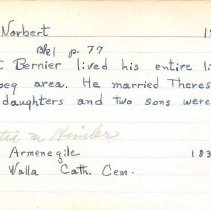 Norbert 1
Bk1 p. 77
t Bernier lived his entire li
peg area. He married Theres
daughters and two sons were
Armenegile 183
Walla Cath. Cem.